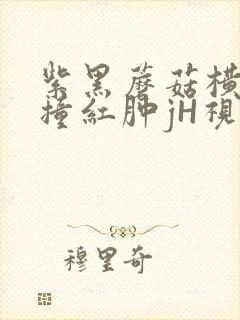 紫黑蘑菇横
撞紅肿jH視
穆里奇